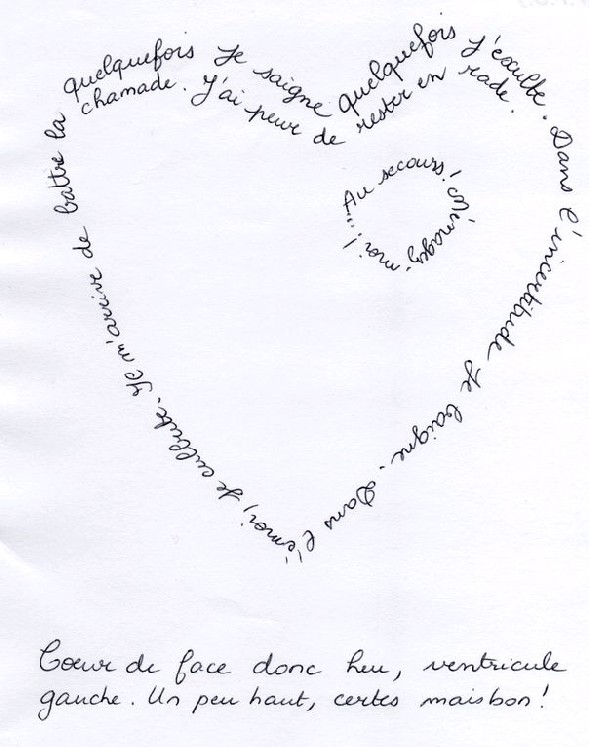 quelquefois je saigne quelquefois j'exulte. Dans l'incertitude je baigne. Dans l'émoi, je culbute. Il m'arrive de battre la chamade. J'ai peur de rester en rade.
Au secours ! Ménagez-moi !...
Coeur de face donc heu, ventricule
gauche. Un peu haut, certes mais bon !